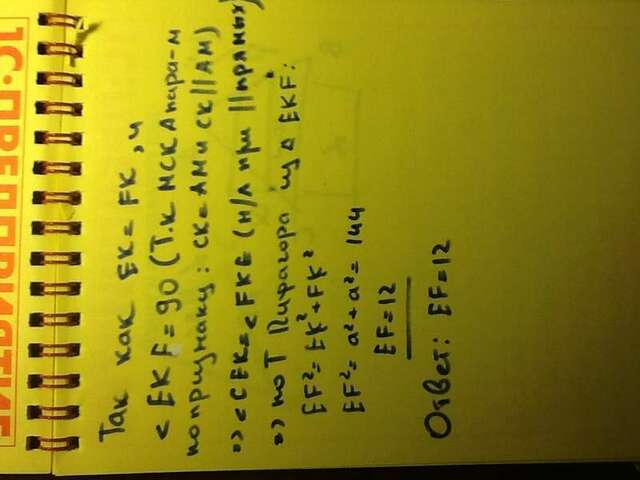 1С:ПРЕДПРИЯТИЕ
Так как EK = FK, и
< EKF = 90 (Т.к MCKA пара-м
по признаку: CK = AM и CK || AM)
=> < CEK = < FKE (н/л при || прямых)
=> по Т Пифагора из Δ EKF:
EF² = EK² + FK²
EF² = a² + a² = 144
EF = 12
Ответ: EF = 12